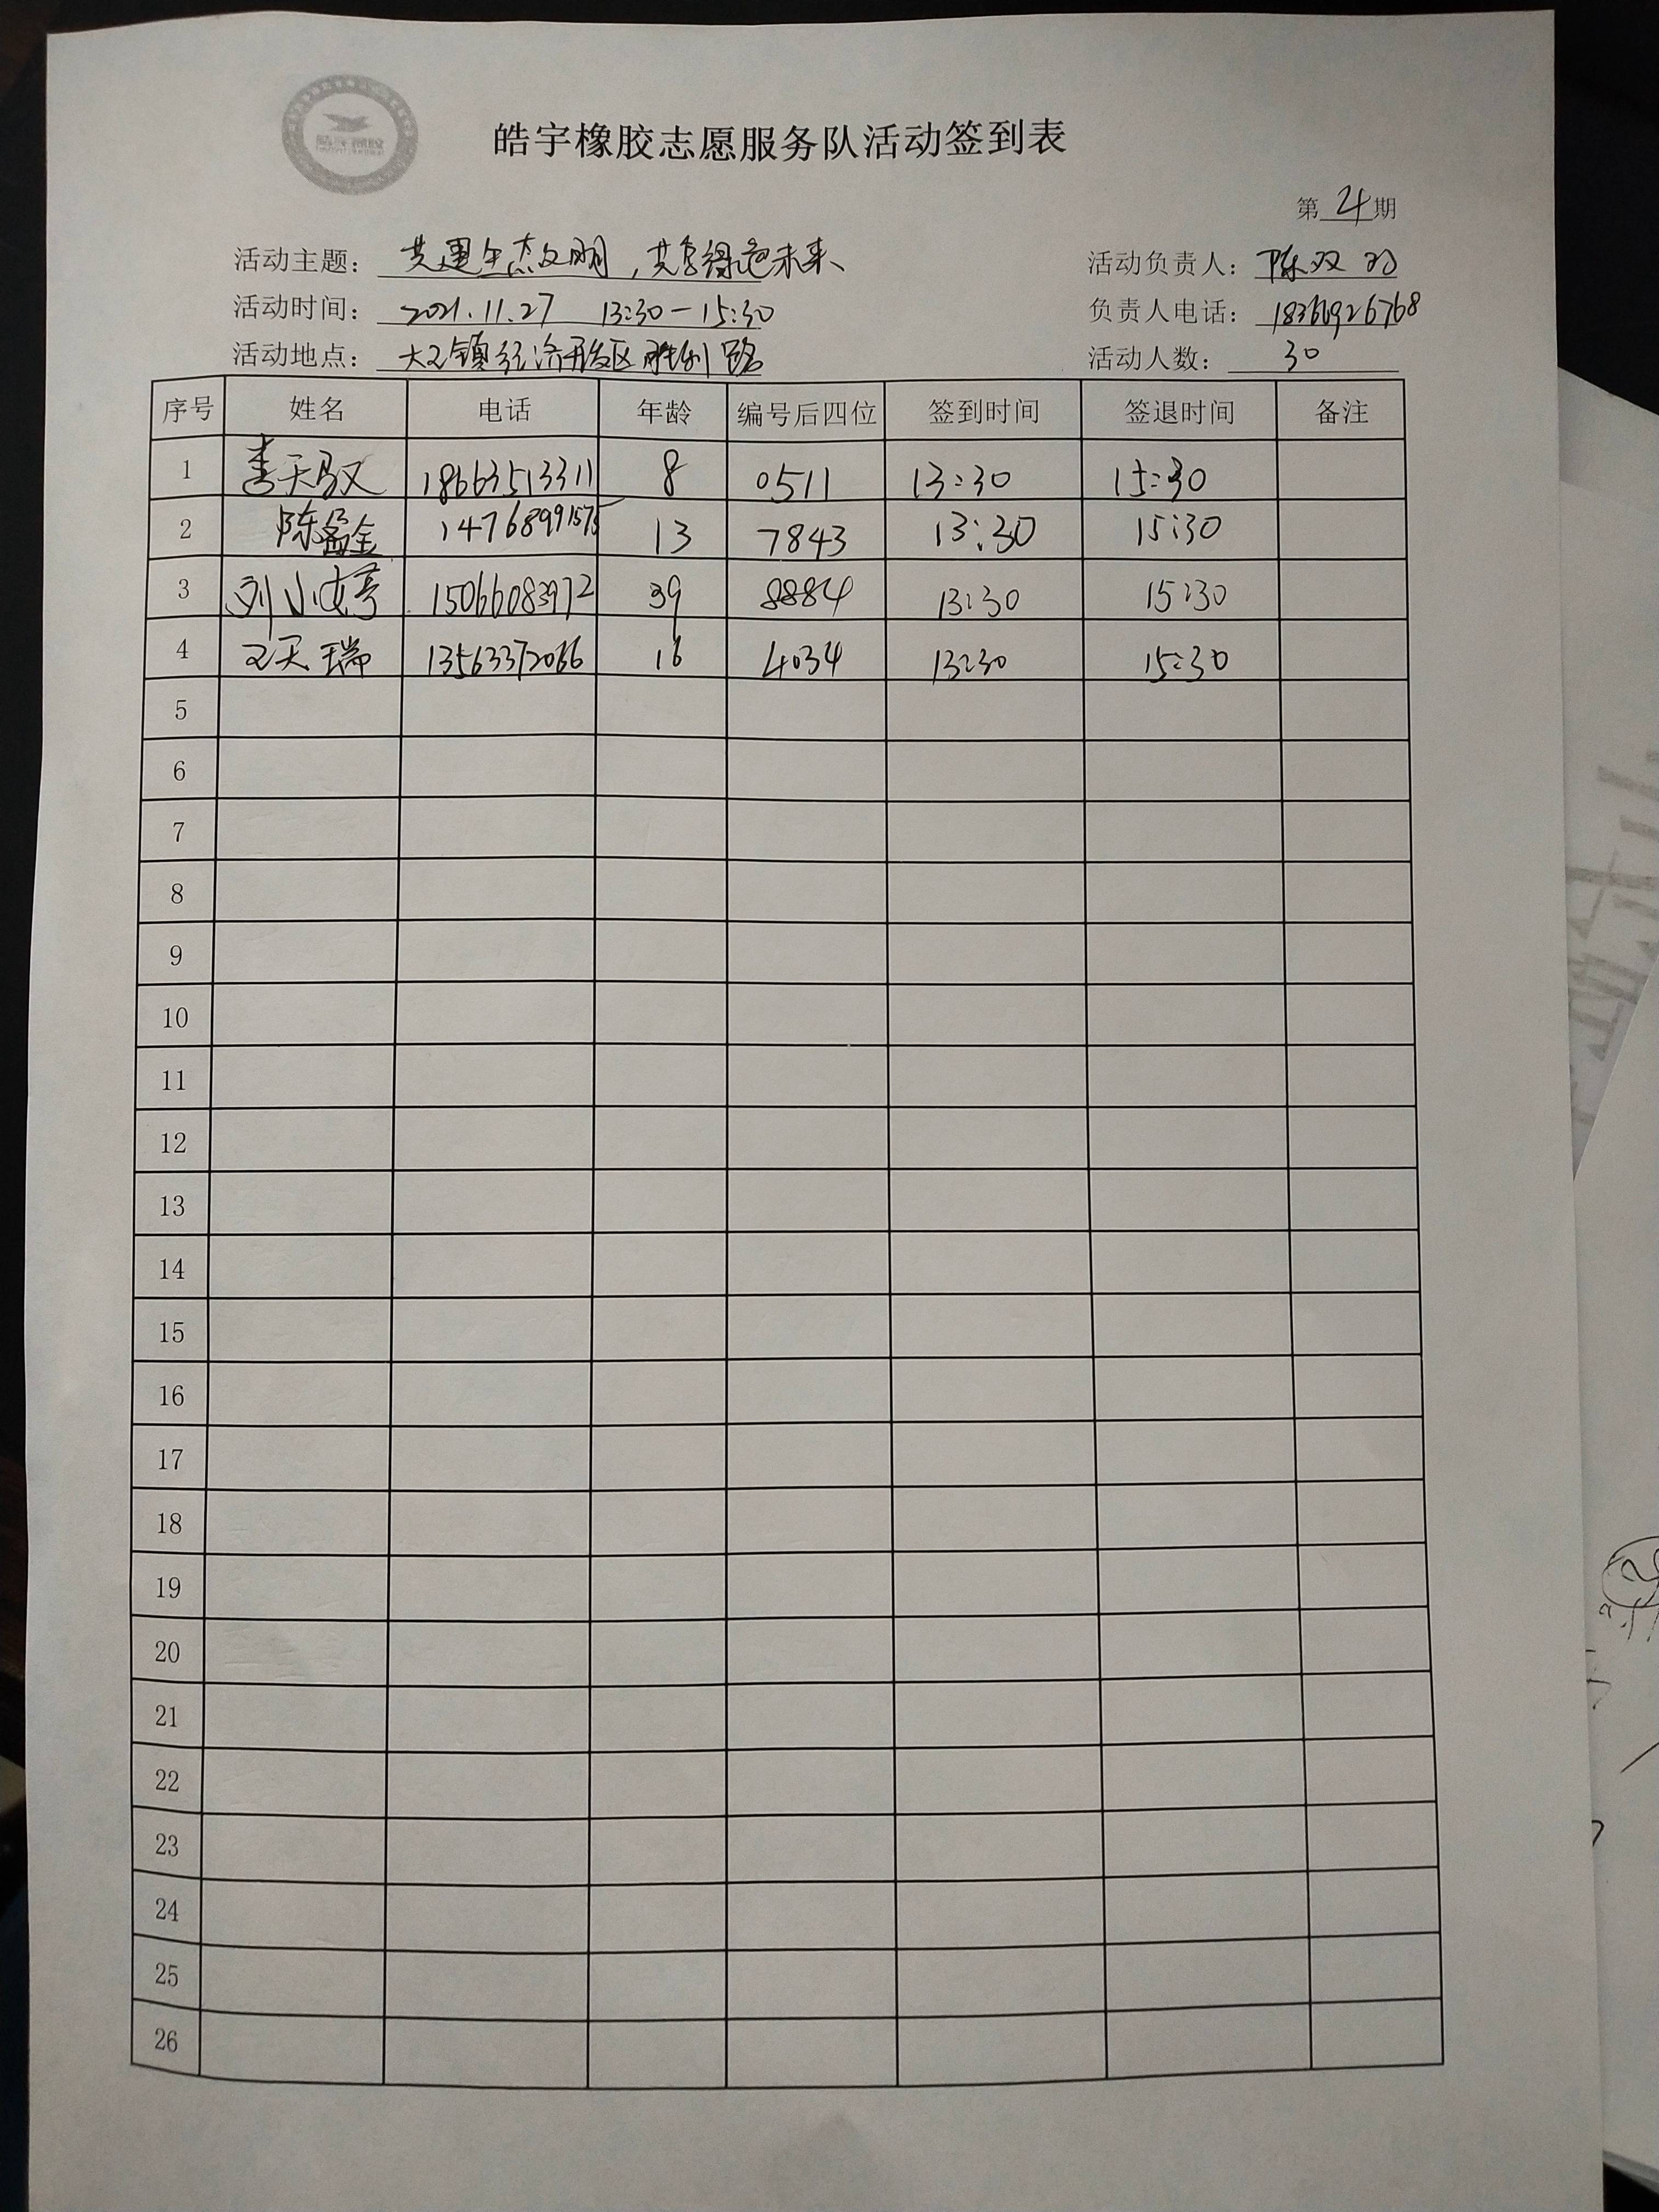 皓宇橡胶志愿服务队活动签到表
第 4 期
活动主题： 共建生态文明，共享绿色未来、 活动负责人： 陈双
活动时间： 2021.11.27 13:30—15:30 负责人电话： 18366926768
活动地点： 大王镇经济开发区胜利路 活动人数： 30
序号 姓名 电话 年龄 编号后四位 签到时间 签退时间 备注
1 李天驭 18663513311 8 0511 13:30 15:30
2 陈 金 14768991575 13 7843 13:30 15:30
3 刘小婷 15066083972 39 8884 13:30 15:30
4 王天瑞 13563372066 16 4034 13:30 15:30
5
6
7
8
9
10
11
12
13
14
15
16
17
18
19
20
21
22
23
24
25
26